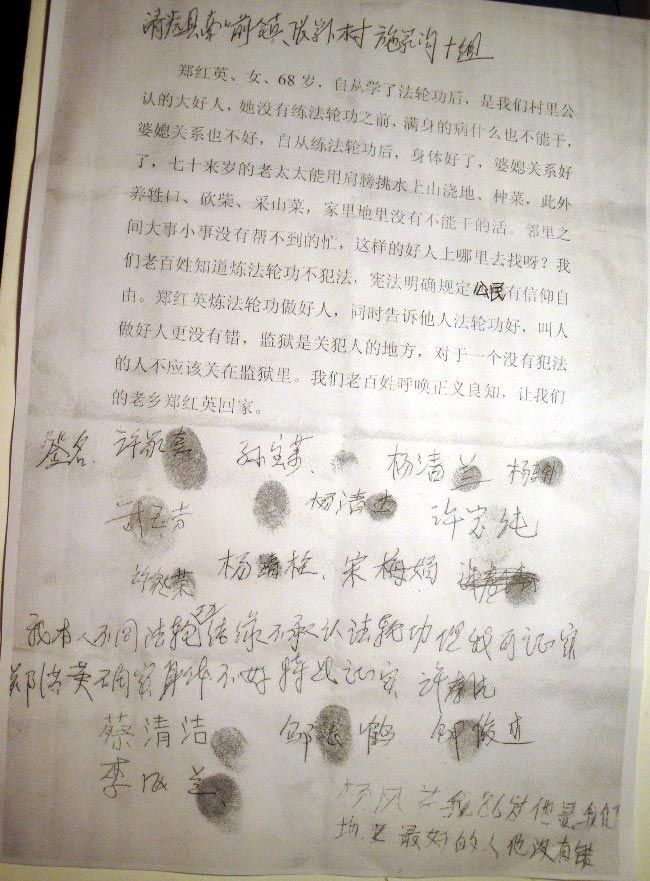 清龙县南 前 镇 张 村 施家沟十组
郑红英、女、68岁，自从学了法轮功后，是我们村里公
认的大好人，她没有练法轮功之前，满身的病什么也不能干，
婆媳关系也不好，自从练法轮功后，身体好了，婆媳关系好
了，七十来岁的老太太能用肩膀挑水上山浇地、种菜，此外
养牲口、砍柴、采山菜，家里地里没有不能干的活。邻里之
间大事小事没有帮不到的忙，这样的好人上哪里去找呀？我
们老百姓知道炼法轮功不犯法，宪法明确规定公民有信仰自
由。郑红英炼法轮功做好人，同时告诉他人法轮功好，叫人
做好人更没有错，监狱是关犯人的地方，对于一个没有犯法
的人不应该关在监狱里。我们老百姓呼唤正义良知，让我们
的老乡郑红英回家。
签名. 许 孙宝 . 杨清兰 杨
杨清 许 纯
杨清栓、宋梅娟
我本人不同法轮 不承认法轮功但我可证实
郑洪英确实身体不好特此证实 许
蔡清洁 邹 鹤 邹俊
李成兰
杨凤 我86岁他是我们
地里最好的人他没有错